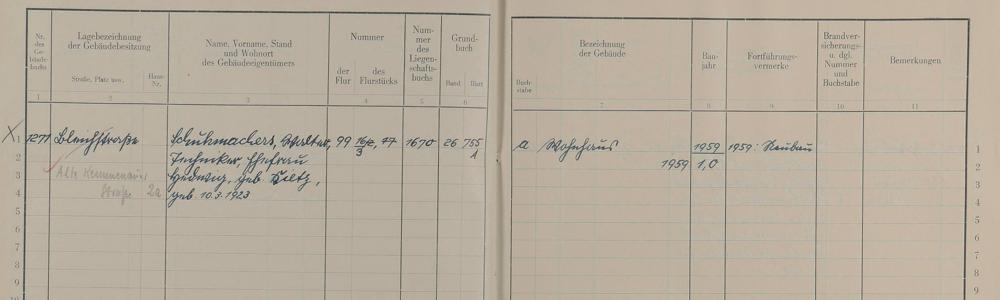 Nr. des Gebäudebuchs
Lagebezeichnung
der Gebäudebesitzung
Straße, Platz usw.
Haus-Nr.
Name, Vorname, Stand
und Wohnort
des Gebäudeeigentümers
Nummer
der Flur
des Flurstücks
Nummer des Liegenschaftsbuchs
Grundbuch
Band
Blatt
Buchstabe
Bezeichnung
der Gebäude
Baujahr
Fortführungsvermerke
Brandversicherungs- u. dgl. Nummer und Buchstabe
Bemerkungen
1 2 3 4 5 6 7 8 9 10 11
X 1 1271 Bleichstraße Schuhmacher, Walter, 99 1670 26 755 a Wohnhaus 1959 1959 Neubau 1
2 Techniker, Ehefrau 1959 1,0 2
3 Alte Hedwig, geb. 3
4 Straße 2a geb. 10.3.1923 4
5 5
6 6
7 7
8 8
9 9